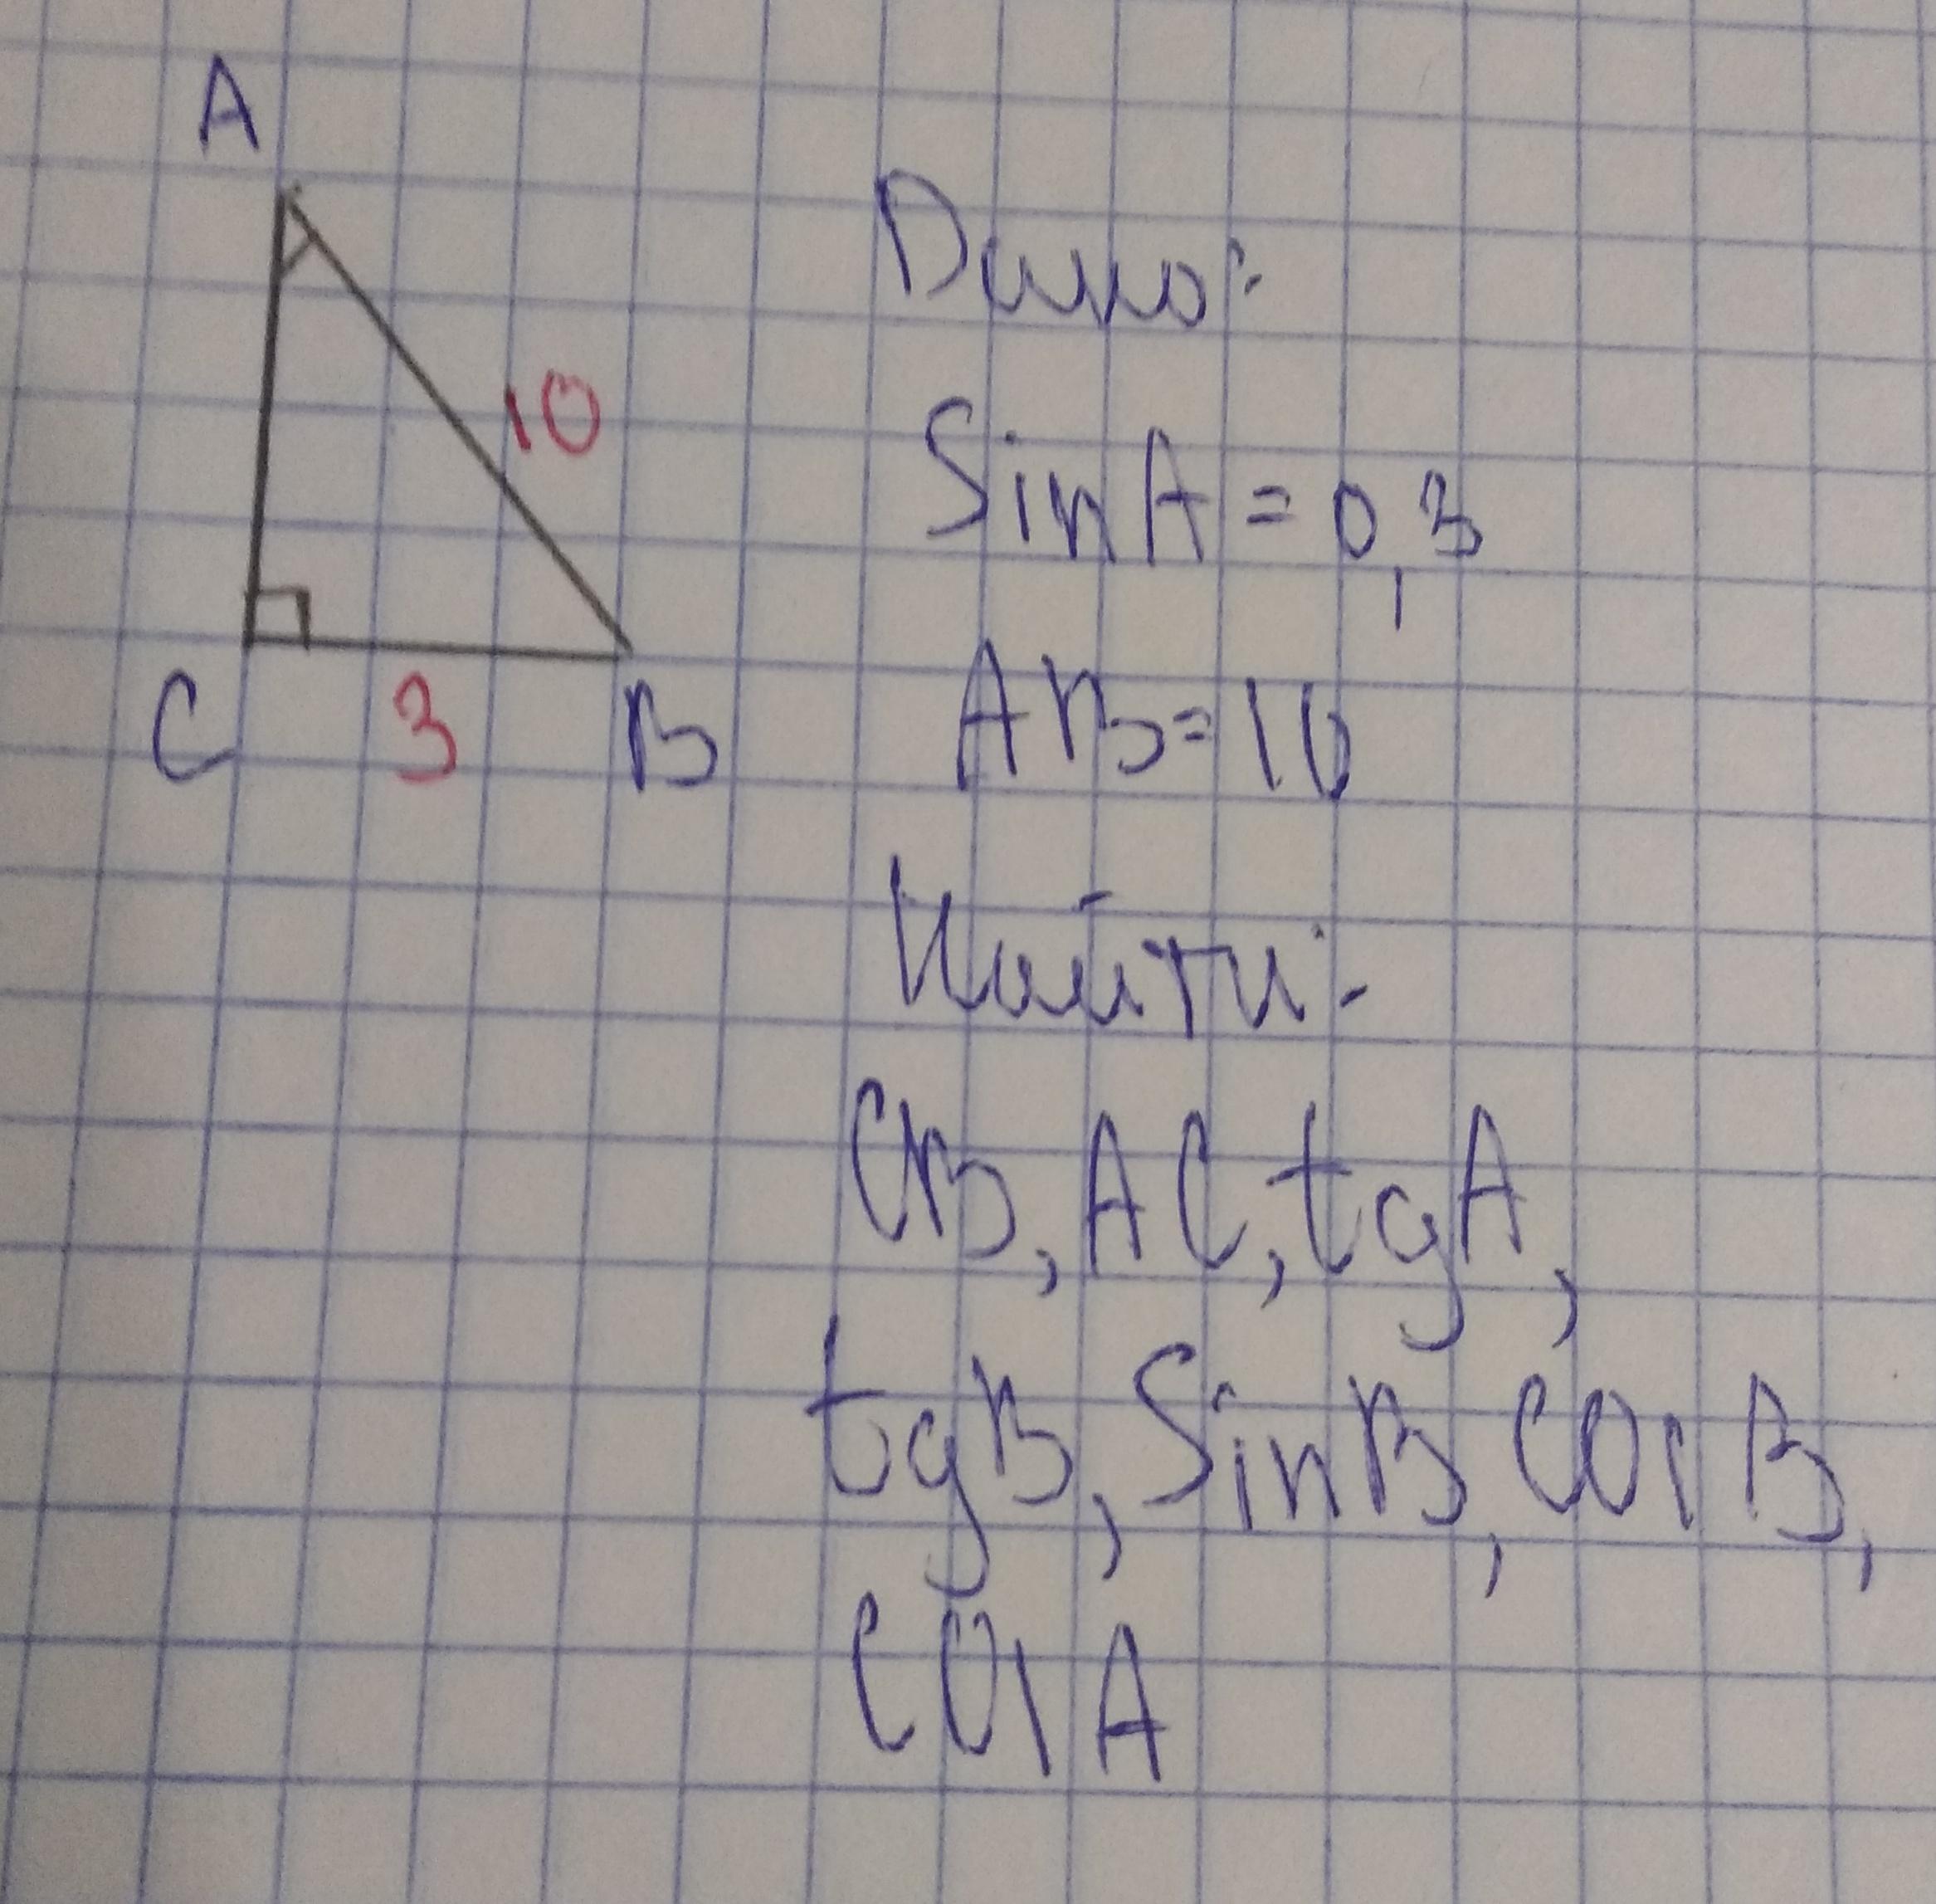 A
10
C 3 B
Дано:
Sin A = 0,3
AB = 10
Найти:
CB, AC, tg A,
tg B, Sin B, cos B,
cos A